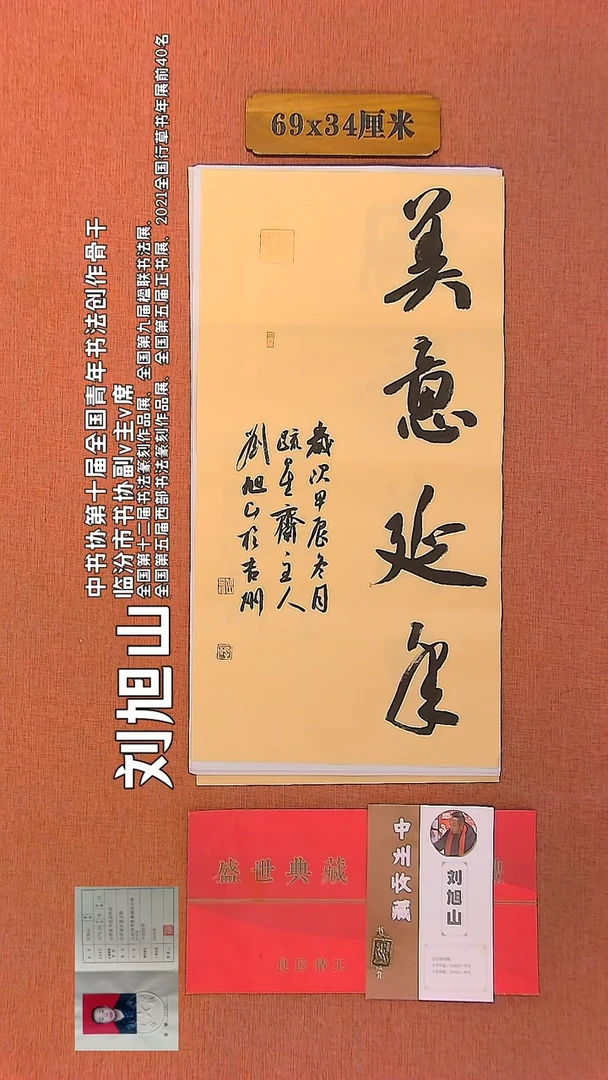 69x34厘米
美意延年
歲次甲辰冬月
疏星齋主人
劉旭山於吉州
中书协第十届全国青年书法创作骨干
临汾市书协副v主v席
全国第十二届书法篆刻作品展、全国第九届楹联书法展、
全国第五届西部书法篆刻作品展、全国第五届正书展、2021全国行草书年展前40名
刘旭山
盛世典藏
中州收藏
刘旭山